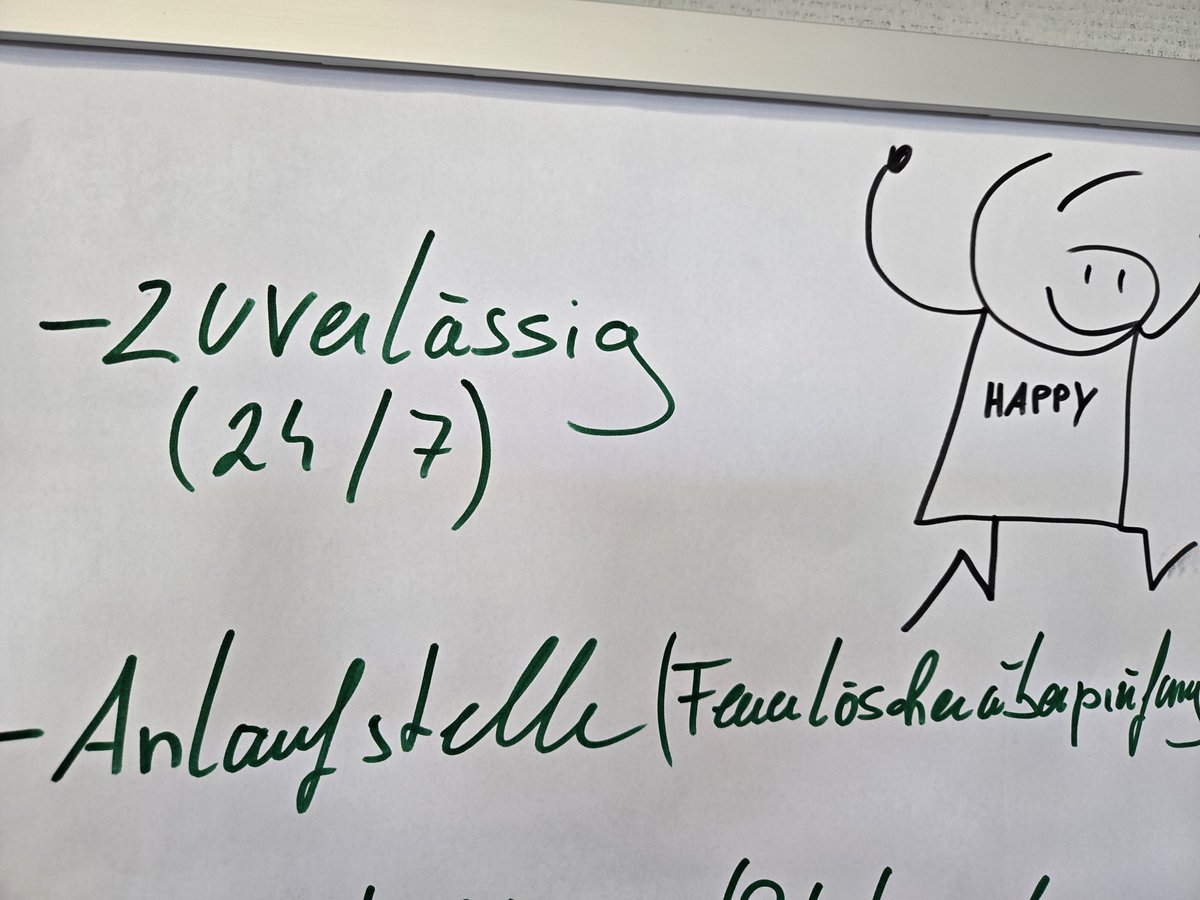 -Zuverlässig
(24/7)
HAPPY
-Anlaufstelle (Feuerlöscherüberprüfung